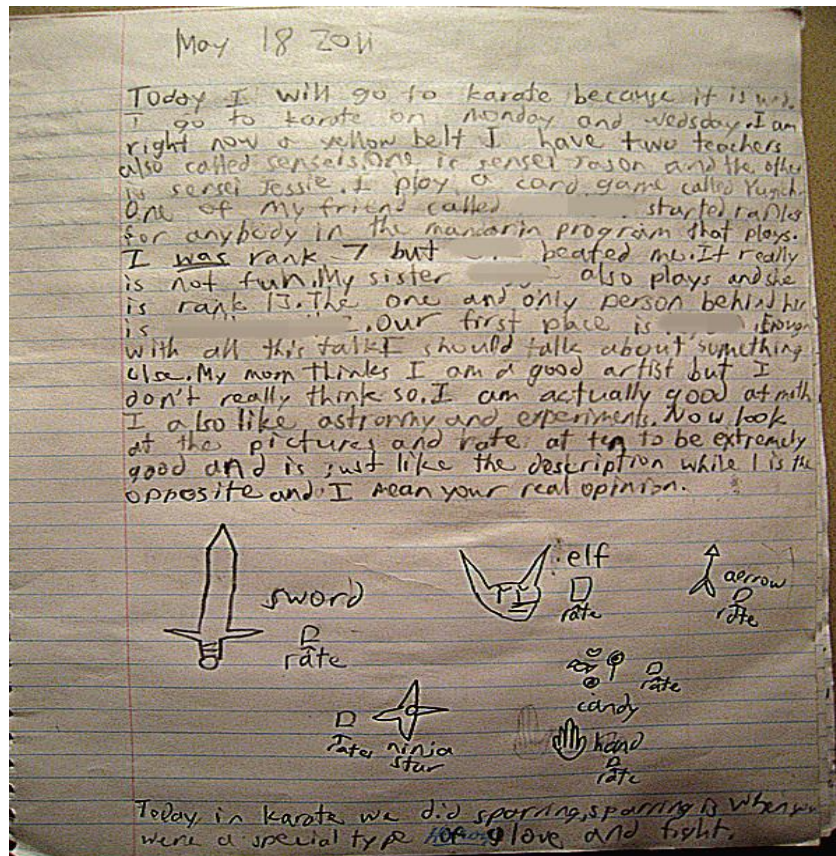 May 18 2011
Today I will go to karate because it is wed.
I go to karate on monday and wedsday. I am
right now a yellow belt I have two teachers
also called senseis. One is sensei Jason and the other
is sensei Jessie. I play a card game called Yugioh.
One of my friend called started
for anybody in the mandarin program that plays.
I was rank 7 but beated me. It really
is not fun. My sister also plays and she
is rank 13. The one and only person behind her
is . Our first place is . Enough
with all this talk I should talk about something
else. My mom thinks I am a good artist but I
don't really think so. I am actually good at math
I also like astronmy and experiments. Now look
at the pictures and rate at ten to be extremely
good and is just like the description while 1 is the
opposite and I mean your real opinion.
sword
rate
elf
rate
aerrow
rate
candy
rate
rate
ninja
star
hand
rate
Today in karate we did sparring, sparring is when you
were a special type of glove and fight.